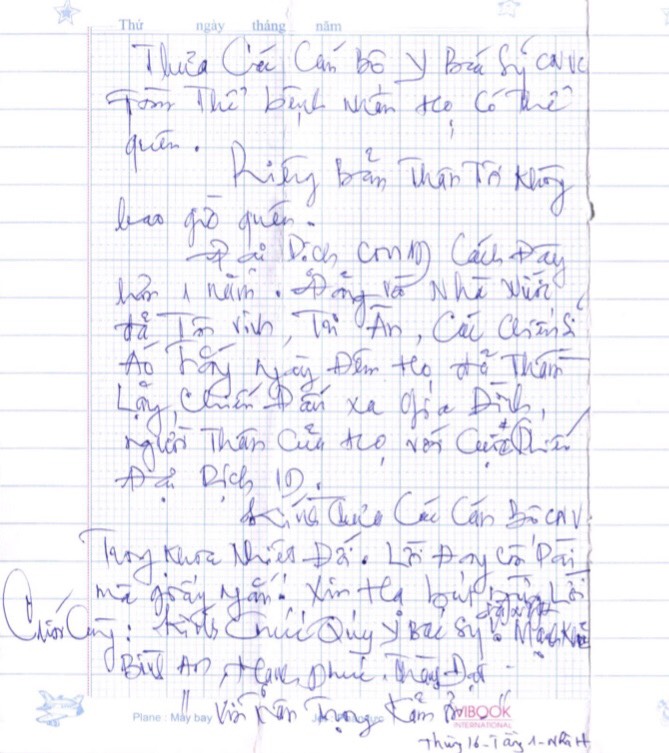 Thứ ngày tháng năm
Thưa Các Cán Bộ Y Bác Sỹ CNVC
Toàn Thể bệnh nhân Họ Có Thể
quên.
Riêng bản Thân Tôi Không
bao giờ quên.
Đại Dịch Cách Đây
hơn 1 năm. Đảng và Nhà Nước
đã Tôn vinh, Tri Ân, Các Chiến Sĩ
Áo Trắng ngày Đêm Họ đã Thầm
Lặng, Chiến Đấu xa Gia Đình,
người Thân Của Họ với Cuộc Chiến
Đại Dịch 19.
Kính Thưa Các Cán Bộ CNV.
Trong Khoa Nhiệt Đới. Lời Dài
mà giấy ngắn. Xin Hạ bút Lời
Cuối Cùng: Kính Chúc Quý Y Bác Sỹ. Mạnh Khỏe
Bình An, Hạnh phúc, Thành Đạt
"Xin Trân Trọng Cảm Ơn"
Plane : Máy bay VIBOOK
INTERNATIONAL
Tầng 1-